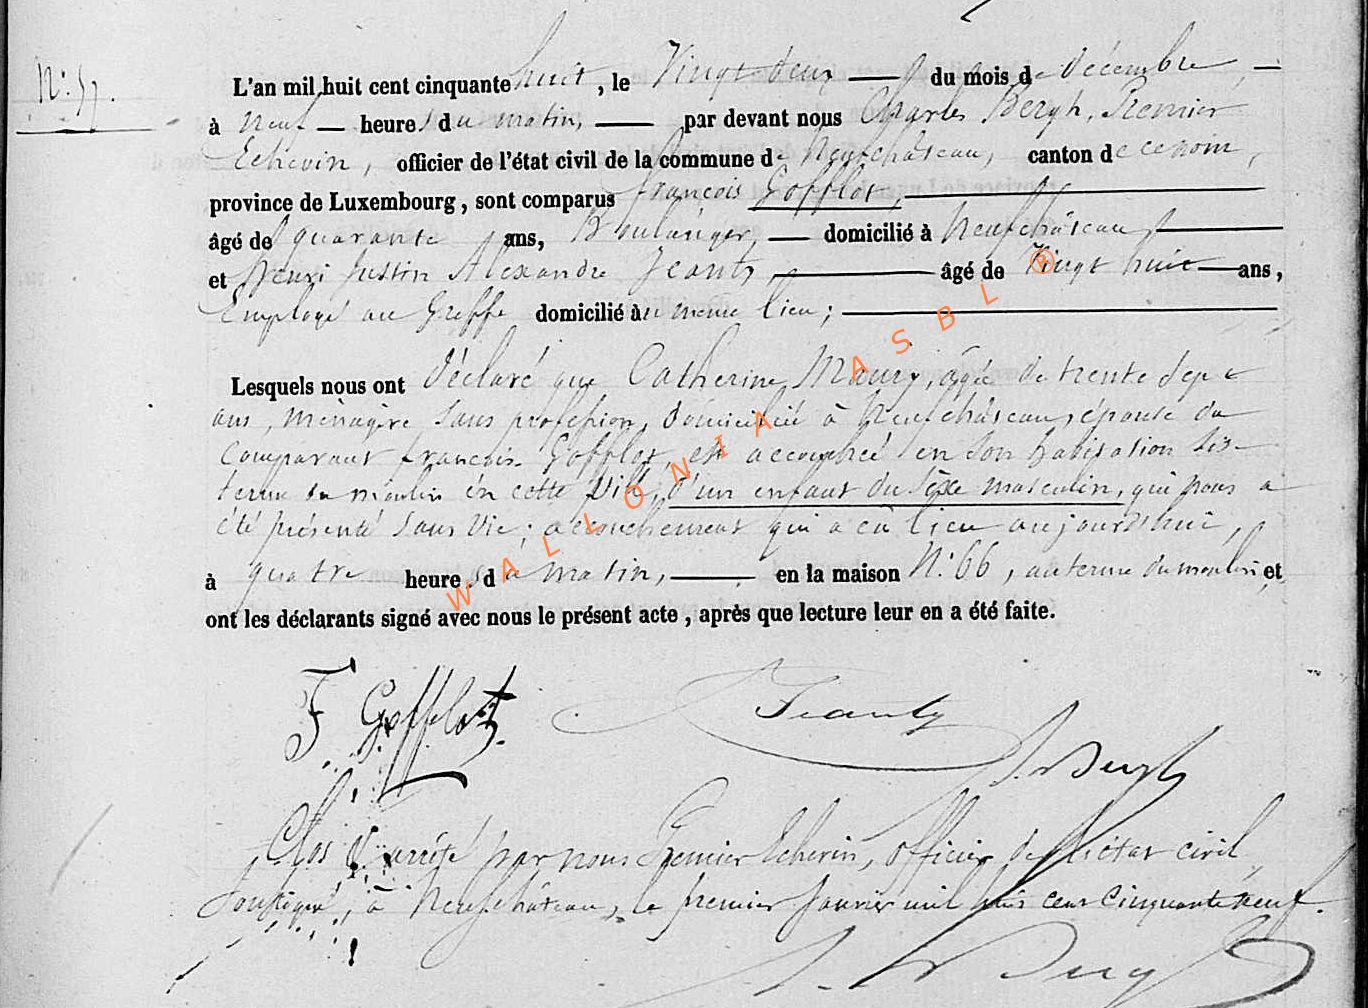 N° 57.
L'an mil huit cent cinquante huit, le Vingt deux du mois de décembre
à neuf heures du matin, par devant nous Charles Bergh, Premier
Echevin, officier de l'état civil de la commune de Neufchâteau, canton de ce nom,
province de Luxembourg, sont comparus françois Gofflot,
âgé de quarante ans, Boulanger, domicilié à Neufchâteau,
et Henri Justin Alexandre Jeanty, âgé de Vingt huit ans,
Employé au Greffe domicilié au même lieu;
Lesquels nous ont déclaré que Catherine Maury, âgée de trente sept
ans, ménagère sans profession, domiciliée à Neufchâteau, épouse du
Comparant françois Gofflot, est accouchée en son habitation
terme du moulin en cette Ville, d'un enfant du sexe masculin, qui nous a
été présenté sans Vie; accouchement qui a eû lieu aujourd'hui,
à quatre heures du matin, en la maison N° 66, au terme du moulin et
ont les déclarants signé avec nous le présent acte, après que lecture leur en a été faite.
F. Gofflot Jeanty
Clos & arrêté par nous Premier Echevin, officier de l'état civil
soussigné, à Neufchâteau, le premier Janvier mil huit cent cinquante neuf.
WALLONIA ASBL ®